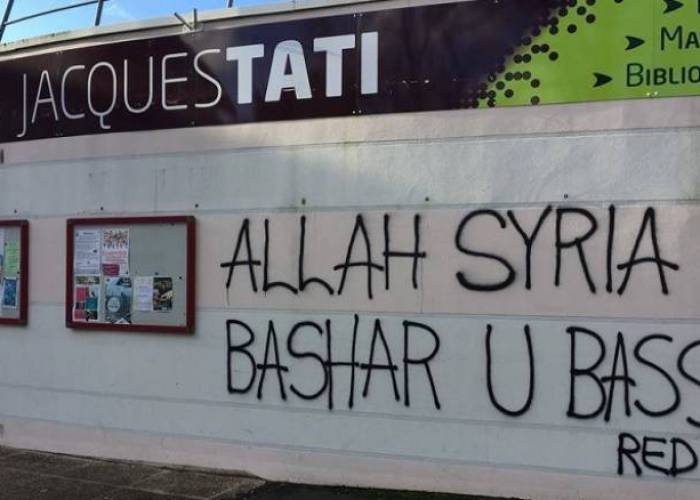 JACQUESTATI
ALLAH SYRIA
BASHAR U BASS
RED